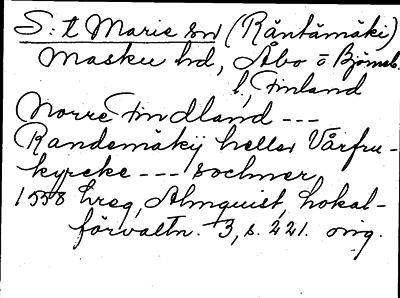 S:t Marie sn (Räntämäki)
Masku hd, Åbo o Björneb.
l, Finland
Norre Findland ---
Randemäkij heller Vårfru-
kyrcke --- sochner
1558 hreg, Almquist, Lokal-
förvaltn. 3, s. 221. orig.